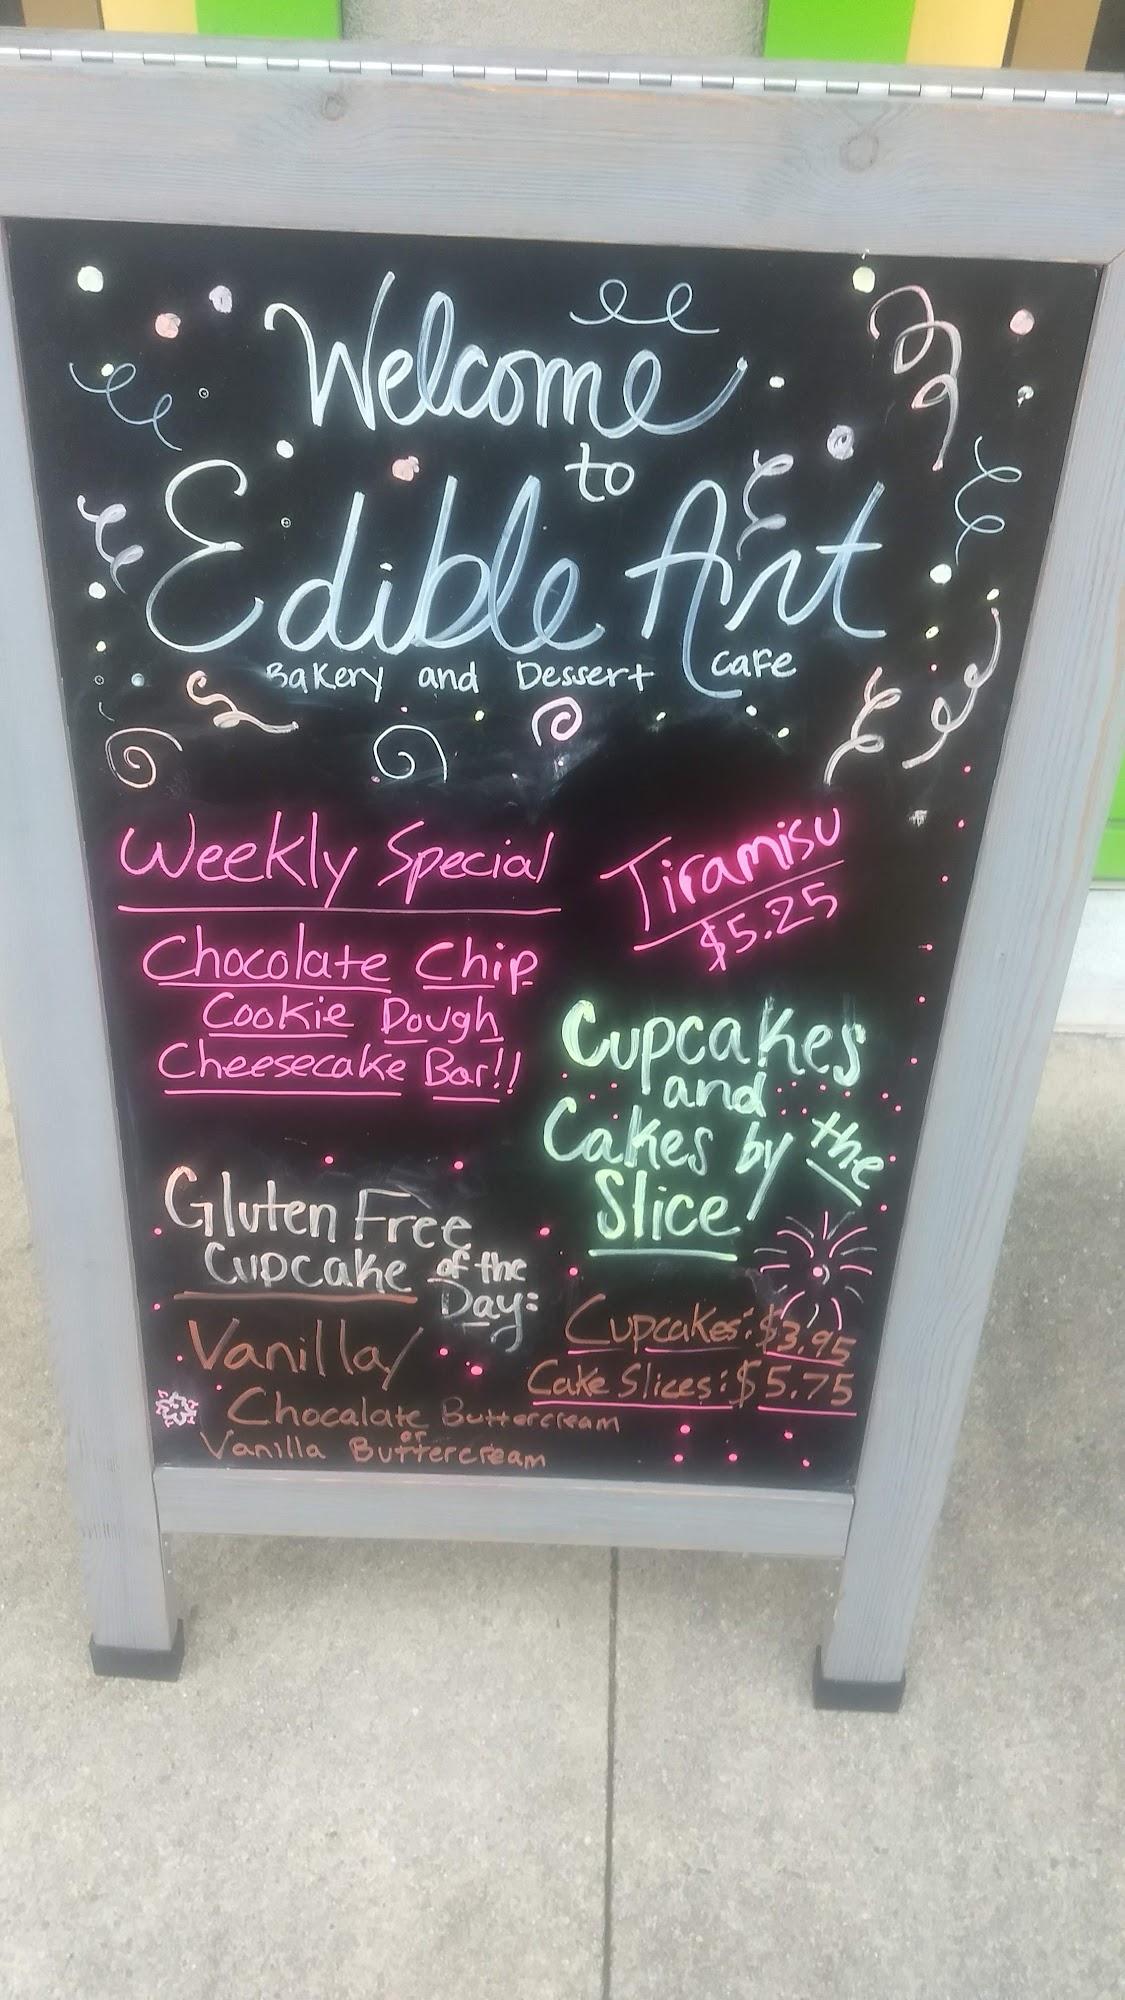 Welcome
to
Edible Art
Bakery and Dessert Cafe
Weekly Special
Chocolate Chip
Cookie Dough
Cheesecake Bar!!
Tiramisu
$5.25
Cupcakes
and
Cakes by the
Slice
Gluten Free
Cupcake of the
Day:
Vanilla/
Chocalate Buttercream
or
Vanilla Buttercream
Cupcakes: $3.95
Cake Slices: $5.75